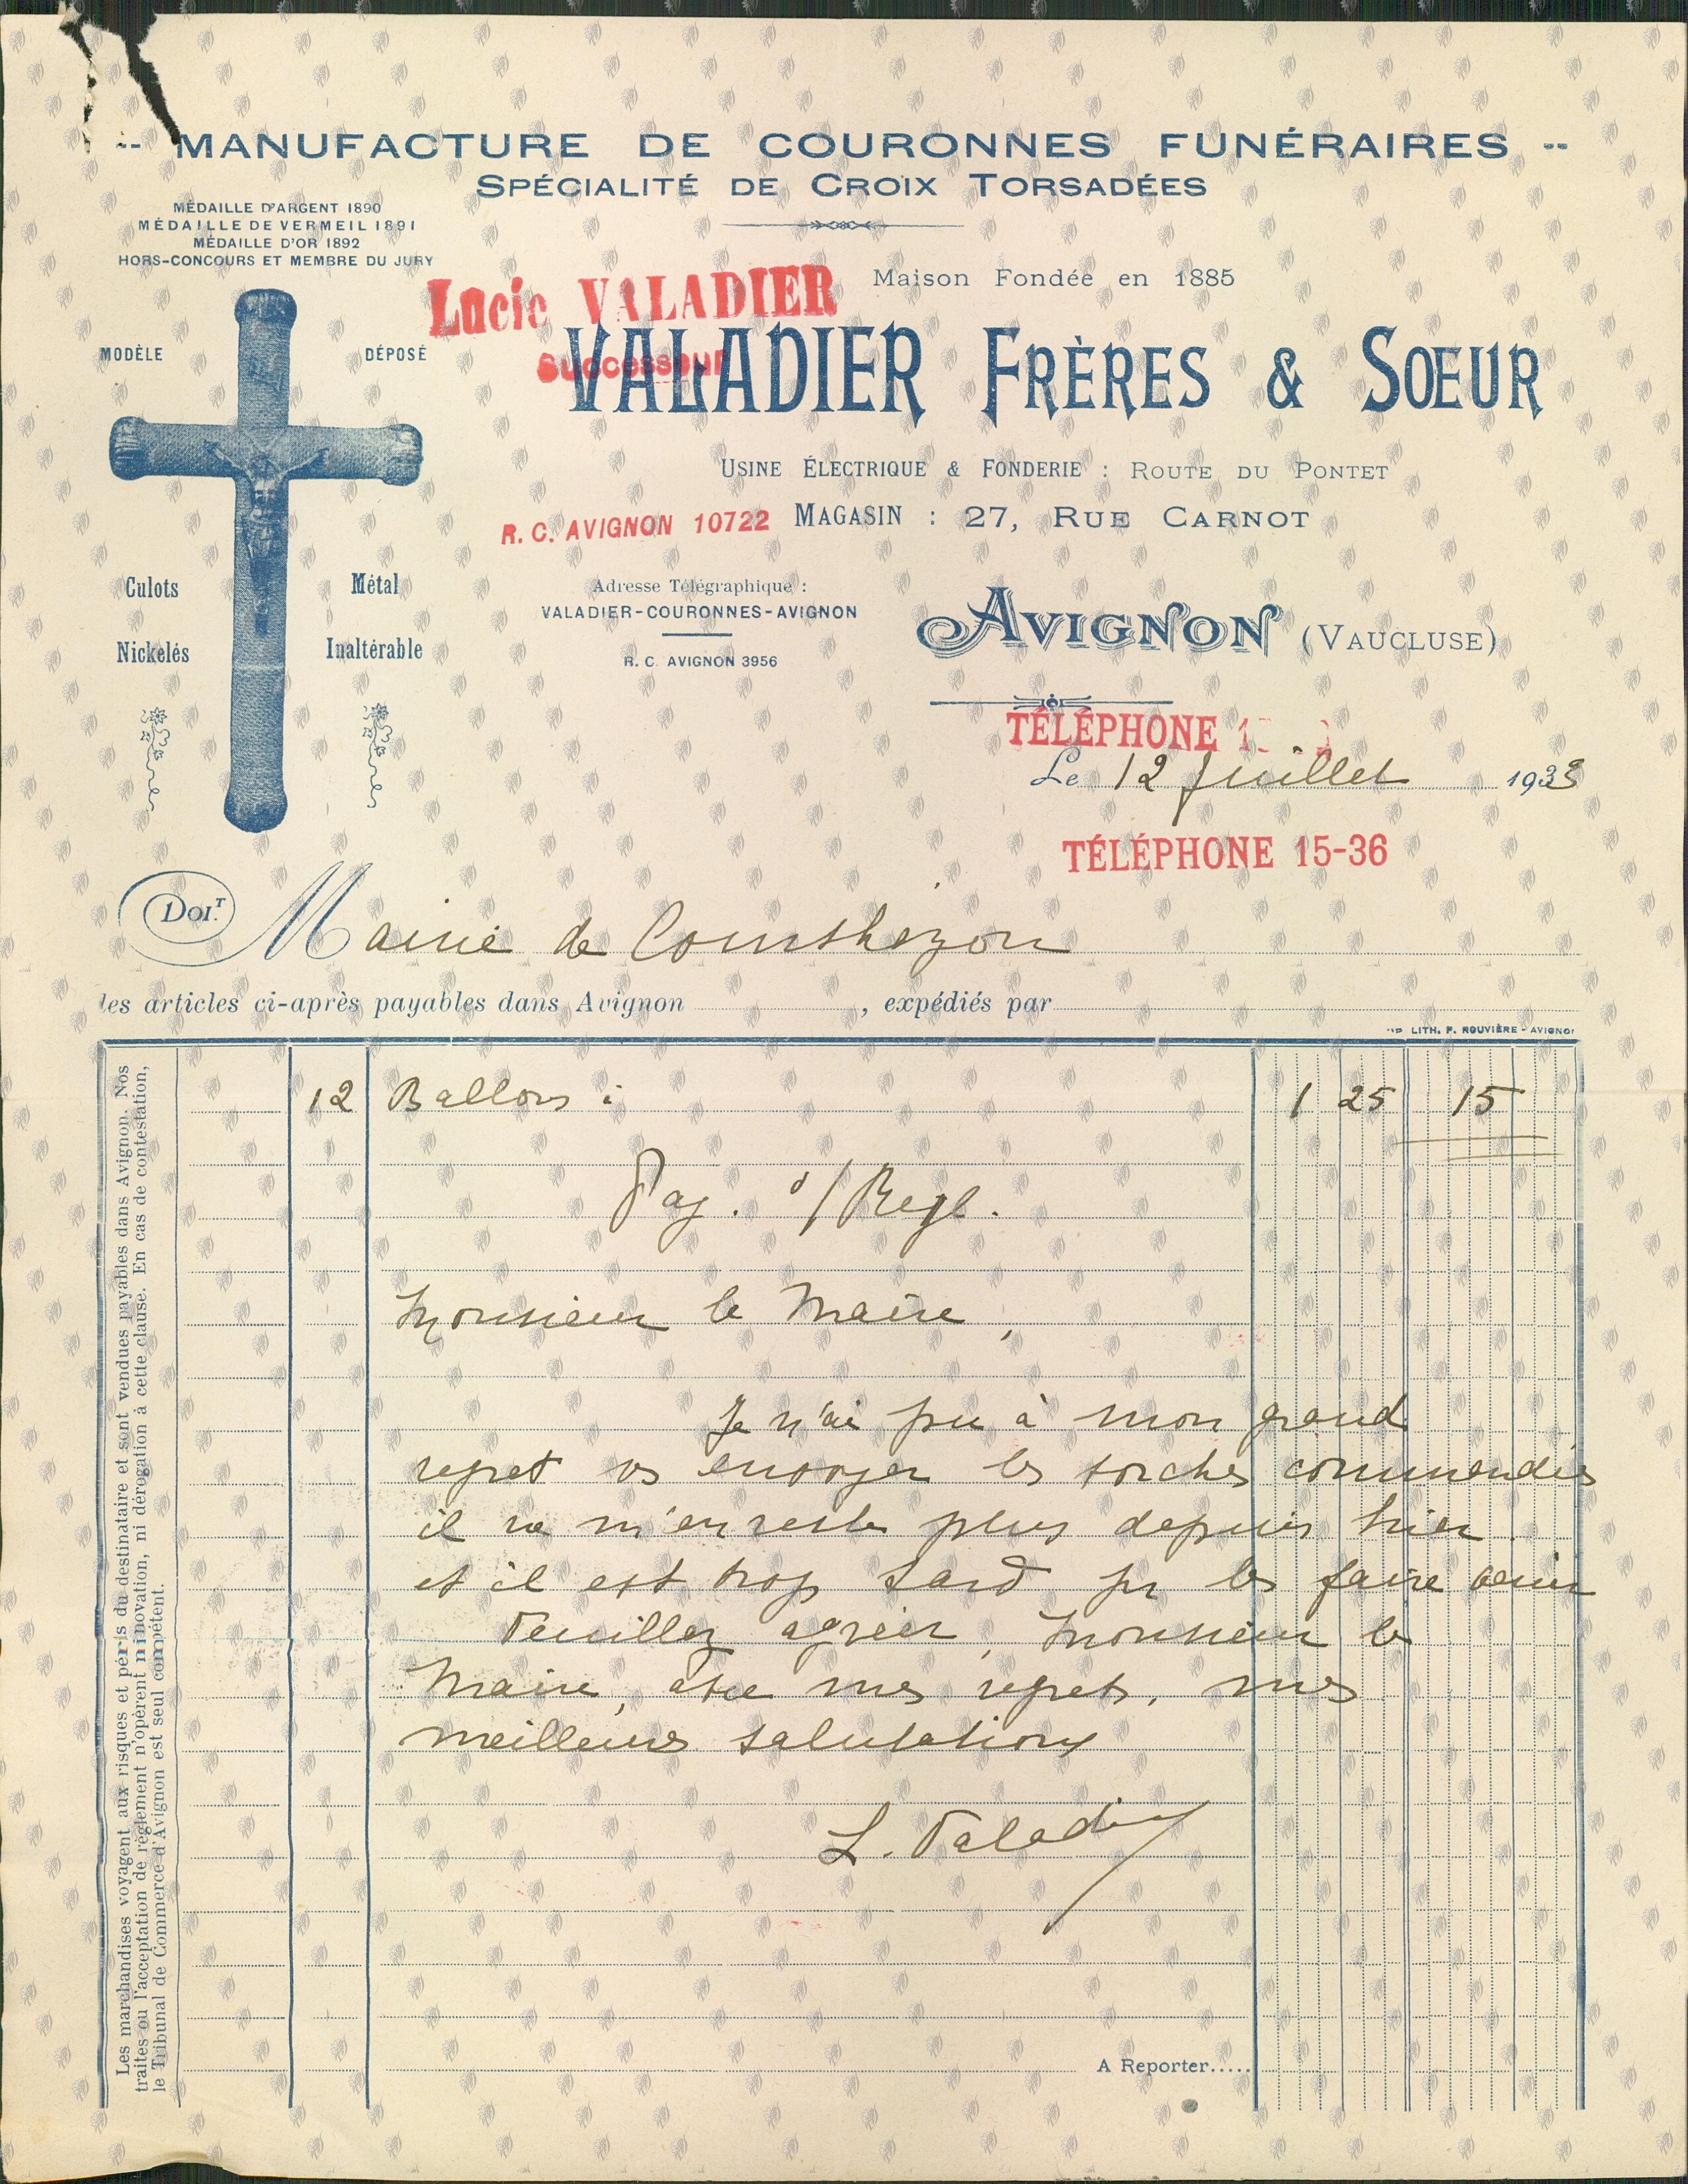 -- MANUFACTURE DE COURONNES FUNÉRAIRES --
SPÉCIALITÉ DE CROIX TORSADÉES
MÉDAILLE D'ARGENT 1890
MÉDAILLE DE VERMEIL 1891
MÉDAILLE D'OR 1892
HORS-CONCOURS ET MEMBRE DU JURY
Maison Fondée en 1885
Lucie VALADIER
Successeur
VALADIER FRÈRES & SŒUR
MODÈLE DÉPOSÉ
USINE ÉLECTRIQUE & FONDERIE : ROUTE DU PONTET
R. C. AVIGNON 10722
MAGASIN : 27, RUE CARNOT
Culots Métal
Nickelés Inaltérable
Adresse Télégraphique :
VALADIER-COURONNES-AVIGNON
R. C. AVIGNON 3956
AVIGNON (VAUCLUSE)
TÉLÉPHONE
Le 12 Juillet 1933
TÉLÉPHONE 15-36
DOIT Mairie de Courthezon
les articles ci-après payables dans Avignon , expédiés par
LITH. F. ROUVIÈRE - AVIGNON
12 Ballons : 1 25 15
Pay. s/Regl.
Monsieur le Maire,
Je n'ai pu à mon grand
regret vs envoyer les torches commandées
il ne m'en reste plus depuis hier
et il est trop tard pr les faire venir
Veuillez agréer, Monsieur le
Maire, avec mes regrets, mes
meilleures salutations
L. Valadier
A Reporter.....
Les marchandises voyagent aux risques et périls du destinataire et sont vendues payables dans Avignon. Nos
traites ou l'acceptation de règlement n'opèrent ni novation, ni dérogation à cette clause. En cas de contestation,
le Tribunal de Commerce d'Avignon est seul compétent.